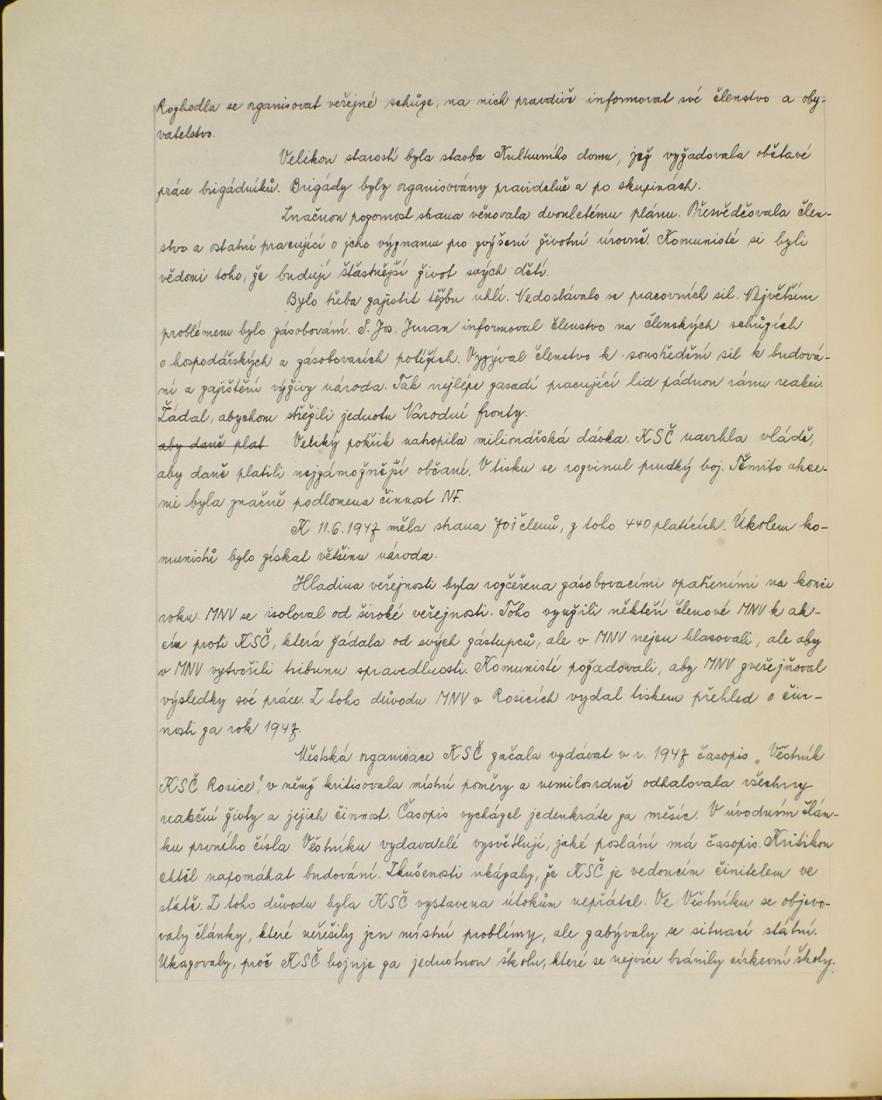 Rozhodla se organisovat veřejné schůze, na nich pravdivě informovat své členstvo a oby-
vatelstvo.
Velikou starostí byla stavba Kulturního domu, jež vyžadovala obětavé
práce brigádníků. Brigády byly organisovány pravidelně a po skupinách.
Značnou pozornost strana věnovala dvouletému plánu. Přesvědčovala člen-
stvo a ostatní pracující o jeho významu pro zvýšení životní úrovně. Komunisté si byli
vědomi toho, že budují šťastnější život svých dětí.
Bylo třeba zajistit těžbu uhlí. Nedostávalo se pracovních sil. Největším
problémem bylo zásobování. S. Jos. Juran informoval členstvo na členských schůzích
o hospodářských a zásobovacích potížích. Vyzýval členstvo k soustředění sil k budová-
ní a zajištění výživy národa. Tak nejlépe zasadí pracující lid pádnou ránu reakci.
Žádal, abychom střežili jednotu Národní fronty.
aby daně plat Veliký pokřik natropila milionářská dávka. KSČ navrhla vládě,
aby daně platili nejzámožnější občané. V tisku se rozvinul prudký boj. Těmito akce-
mi byla značně podlomena činnost NF.
K 11.6.1947 měla strana 701 členů, z toho 440 platících. Úkolem ko-
munistů bylo získat většinu národa.
Hladina veřejnosti byla rozčeřena zásobovacími opatřeními na konci
roku. MNV se isoloval od široké veřejnosti. Toho využili někteří členové MNV k ak-
cím proti KSČ, která žádala od svých zástupců, ale v MNV nejen hlasovali, ale aby
v MNV vytvořili tribunu spravedlnosti. Komunisté požadovali, aby MNV zveřejňoval
výsledky své práce. Z toho důvodu MNV v Rosicích vydal tiskem přehled o čin-
nosti za rok 1947.
Městská organisace KSČ začala vydávat v r. 1947 časopis „Věstník
KSČ Rosice", v němž kritisovala místní poměry a nemilosrdně odhalovala všechny
reakční živly a jejich činnost. Časopis vycházel jedenkráte za měsíc. V úvodním člán-
ku prvního čísla Věstníku vydavatelé vysvětlují, jaké poslání má časopis. Kritikou
chtěl napomáhat budování. Zkušenosti ukázaly, že KSČ je vedoucím činitelem ve
státě. Z toho důvodu byla KSČ vystavena útokům nepřátel. Ve Věstníku se objevo-
valy články, které neřešily jen místní problémy, ale zabývaly se situací státní.
Ukazovaly, proč KSČ bojuje za jednotnou školu, které se nejvíce bránily církevní školy.